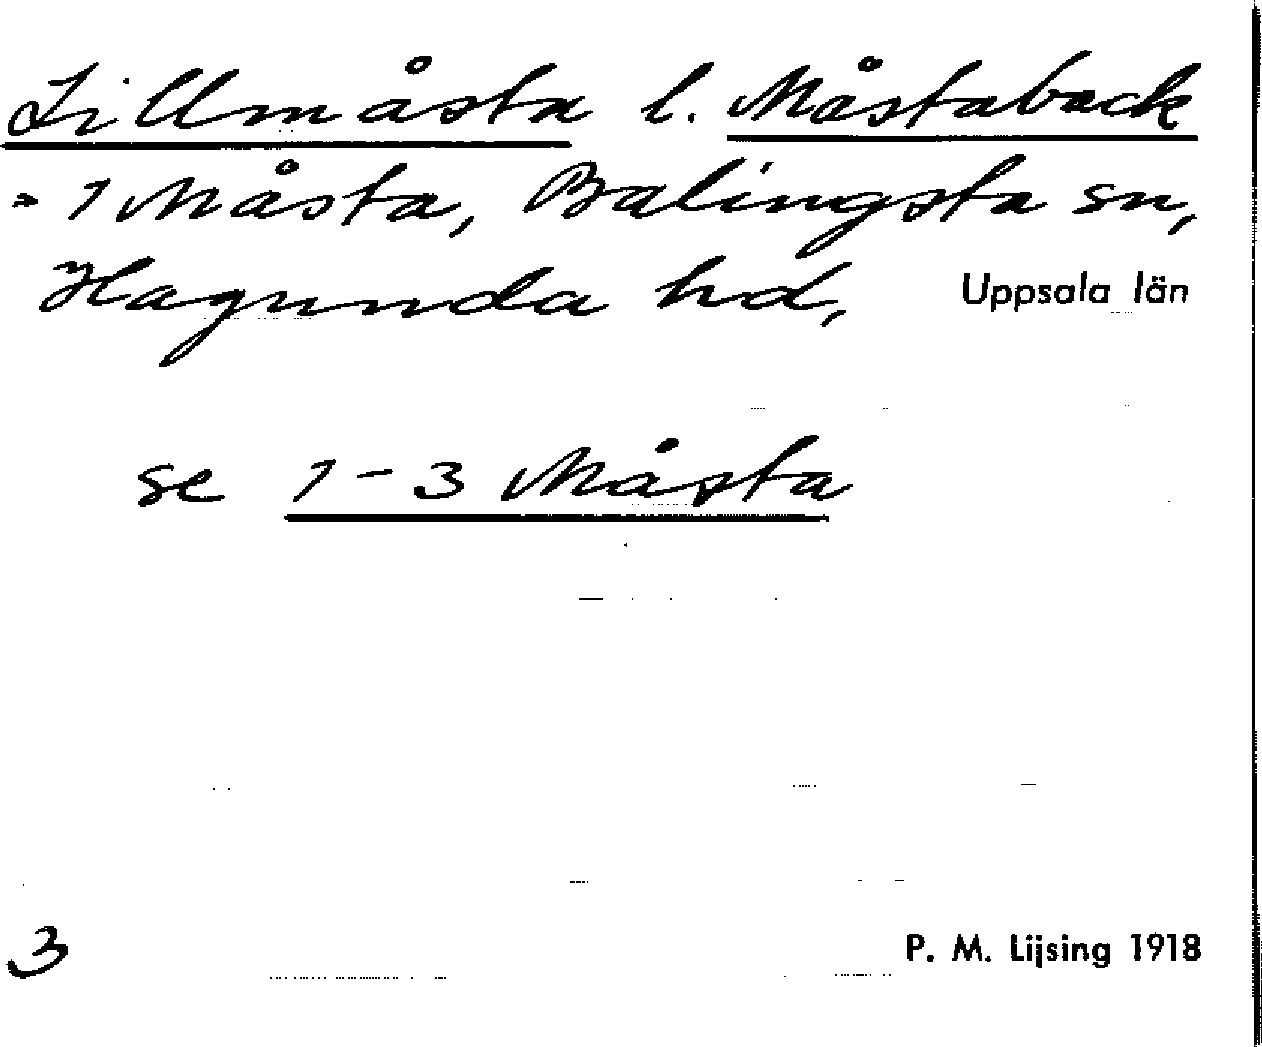 Lillmåsta l. Måstaback
= 1 Måsta, Balingsta sn,
Hagunda hd, Uppsala län
se 1-3 Måsta
3 P. M. Lijsing 1918